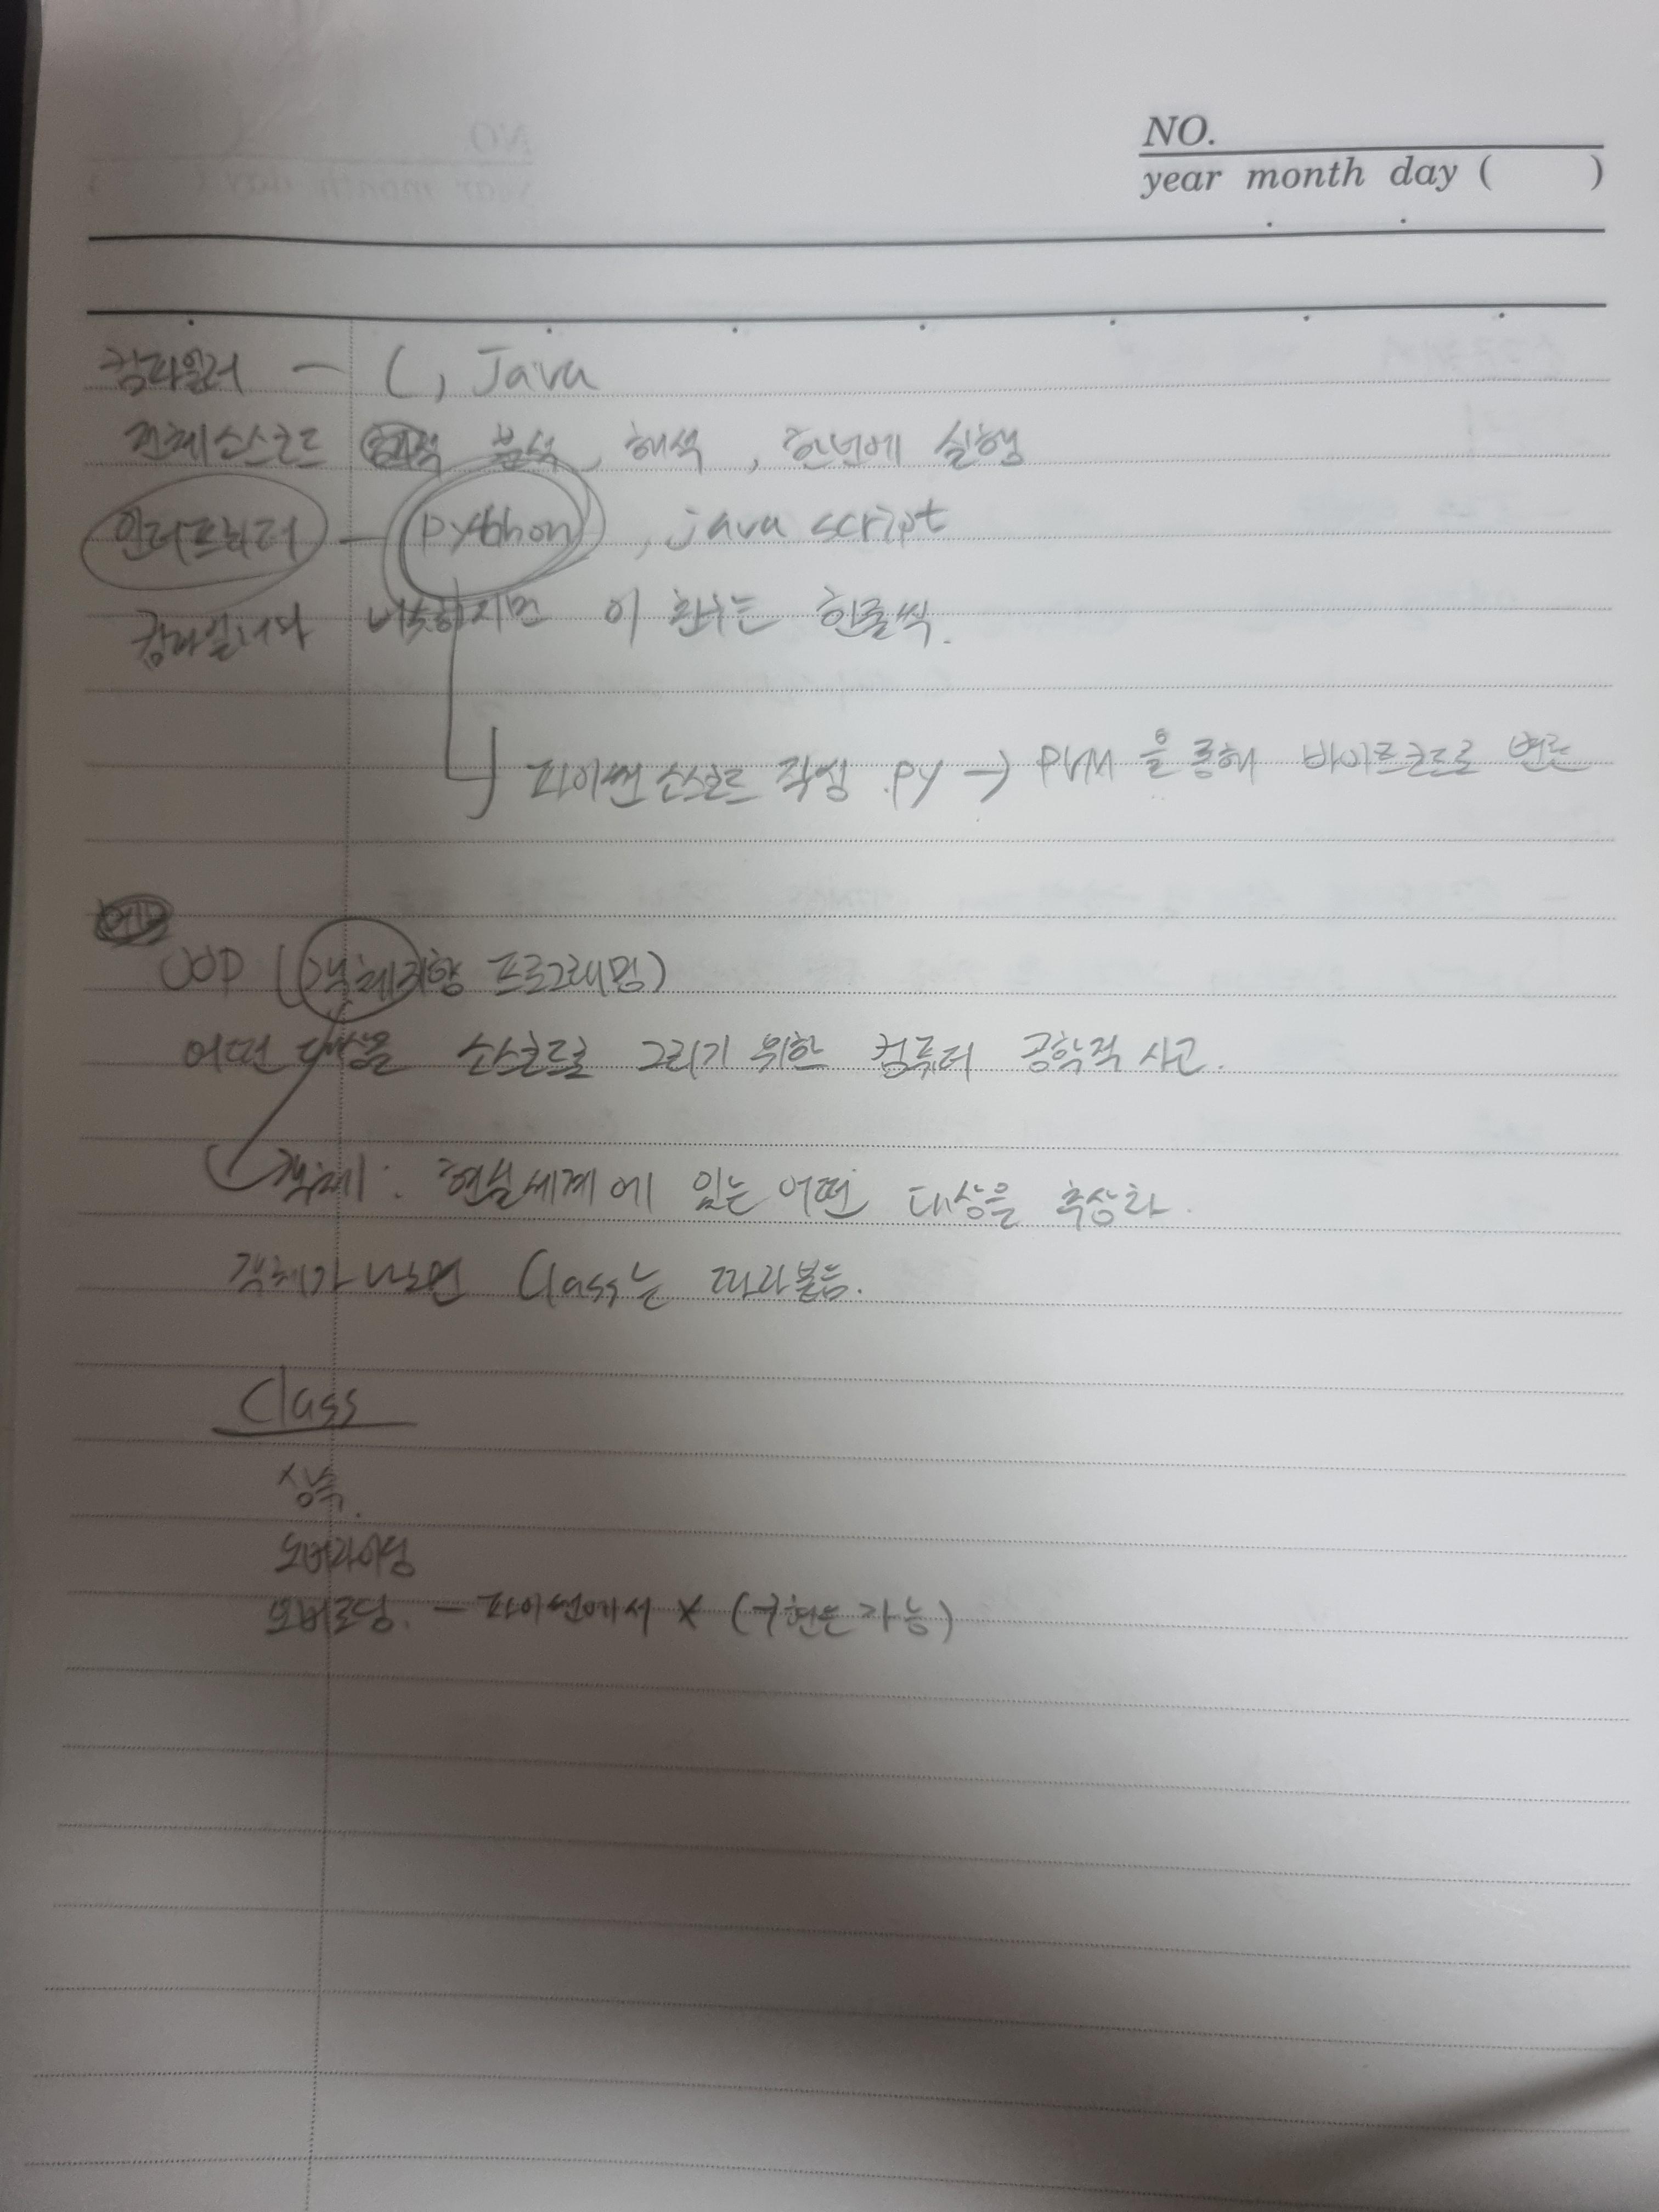 NO.
year month day ( )
컴파일러 - C, Java
전체소스코드 분석, 해석, 한번에 실행
인터프리터 - python, java script
컴파일러와 비슷하지만 이 친구는 한줄씩.
파이썬 소스코드 작성 .py → PVM을 통해 바이트코드로 변환
OOP (객체지향 프로그래밍)
어떤 대상을 소스코드로 그리기 위한 컴퓨터 공학적 사고.
객체 : 현실세계에 있는 어떤 대상을 추상화.
객체가 나오면 Class는 따라붙음.
Class
상속.
오버라이딩
오버로딩. - 파이썬에서 X (구현은 가능)